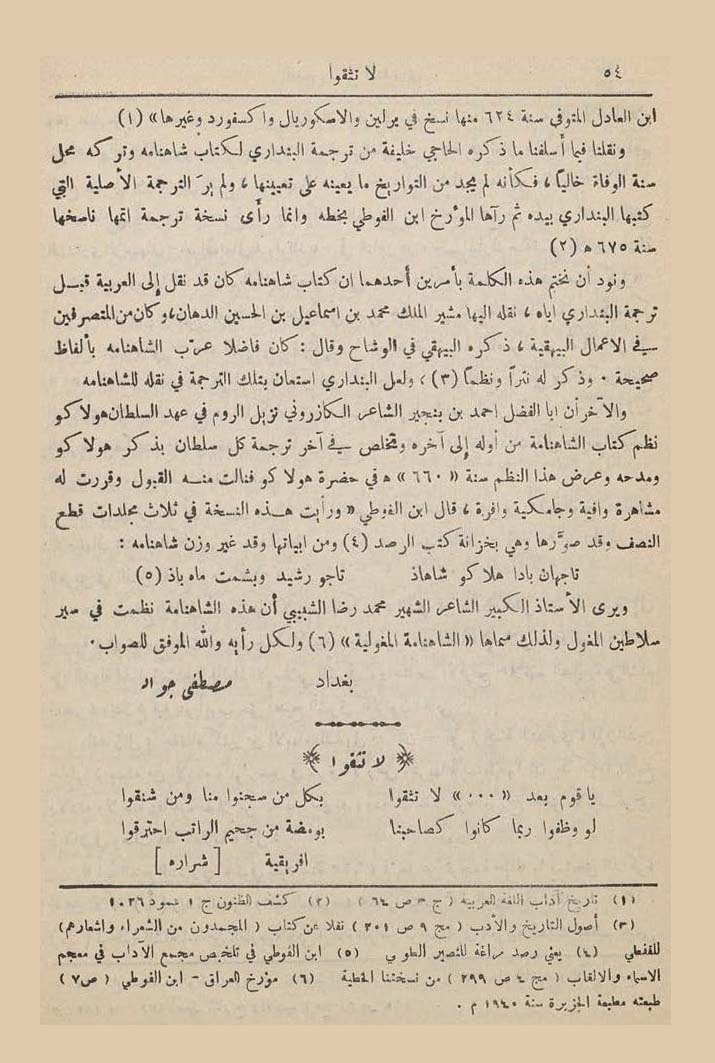 ٥٤
لا تثقوا
ابن العادل المتوفى سنة ٦٢٤ منها نسخ في برلين والاسكوريال واكسفورد وغيرها» (١)
ونقلنا فيما أسلفنا ما ذكره الحاجي خليفة من ترجمة البنداري لكتاب شاهنامه وتركه محل
سنة الوفاة خالياً، فكأنه لم يجد من التواريخ ما يعينه على تعيينها، ولم يرَ الترجمة الأصلية التي
كتبها البنداري بيده ثم رآها المؤرخ ابن الفوطي بخطه وانما رأى نسخة ترجمة اتمها ناسخها
سنة ٦٧٥ ه (٢)
ونود أن نختم هذه الكلمة بأمرين أحدهما ان كتاب شاهنامه كان قد نقل إلى العربية قبل
ترجمة البنداري اياه، نقله اليها مشير الملك محمد بن اسماعيل بن الحسين الدهان، وكان من المتصرفين
في الاعمال البيهقية، ذكره البيهقي في الوشاح وقال: كان فاضلا عرّب الشاهنامه بألفاظ
صحيحة. وذكر له نثراً ونظماً (٣)، ولعل البنداري استعان بتلك الترجمة في نقله للشاهنامه
والآخر أن ابا الفضل احمد بن بنجير الشاعر الكازروني نزيل الروم في عهد السلطان هولاكو
نظم كتاب الشاهنامة من أوله إلى آخره ويتخلص في آخر ترجمة كل سلطان بذكر هولاكو
ومدحه وعرض هذا النظم سنة «٦٦٠» ه في حضرة هولاكو فنالت منه القبول وقررت له
مشاهرة وافية وجامكية وافرة، قال ابن الفوطي «ورأيت هذه النسخة في ثلاث مجلدات قطع
النصف وقد صوَّرها وهي بخزانة كتب الرصد (٤) ومن ابياتها وقد غير وزن شاهنامه:
تاجهان بادا هلاكو شاهاذ تاجو رشيد وبشمت ماه باذ (٥)
ويرى الأستاذ الكبير الشاعر الشهير محمد رضا الشبيبي أن هذه الشاهنامة نظمت في سير
سلاطين المغول ولذلك سماها «الشاهنامة المغولية» (٦) ولكل رأيه والله الموفق للصواب.
بغداد مصطفى جواد
لا تثقوا
يا قوم بعد «...» لا تثقوا بكل من سجنوا منا ومن شنقوا
لو وظفوا ربما كانوا كصاحبنا بومضة من جحيم الراتب احترقوا
افريقية [شراره]
(١) تاريخ آداب اللغة العربية (ج ٣ ص ٦٤) (٢) كشف الظنون ج ١ عمود ١٠٢٦
(٣) أصول التاريخ والأدب (مج ٩ ص ٢٠١) نقلا عن كتاب (المحمدون من الشعراء واشعارهم)
للقفطي (٤) يعني رصد مراغة للنصير الطوسي (٥) ابن الفوطي في تلخيص مجمع الآداب في معجم
الاسماء والالقاب (مج ٤ ص ٢٩٩) من نسختنا الخطية (٦) مؤرخ العراق - ابن الفوطي (ص ٧)
طبعته مطبعة الجزيرة سنة ١٩٤٠ م.